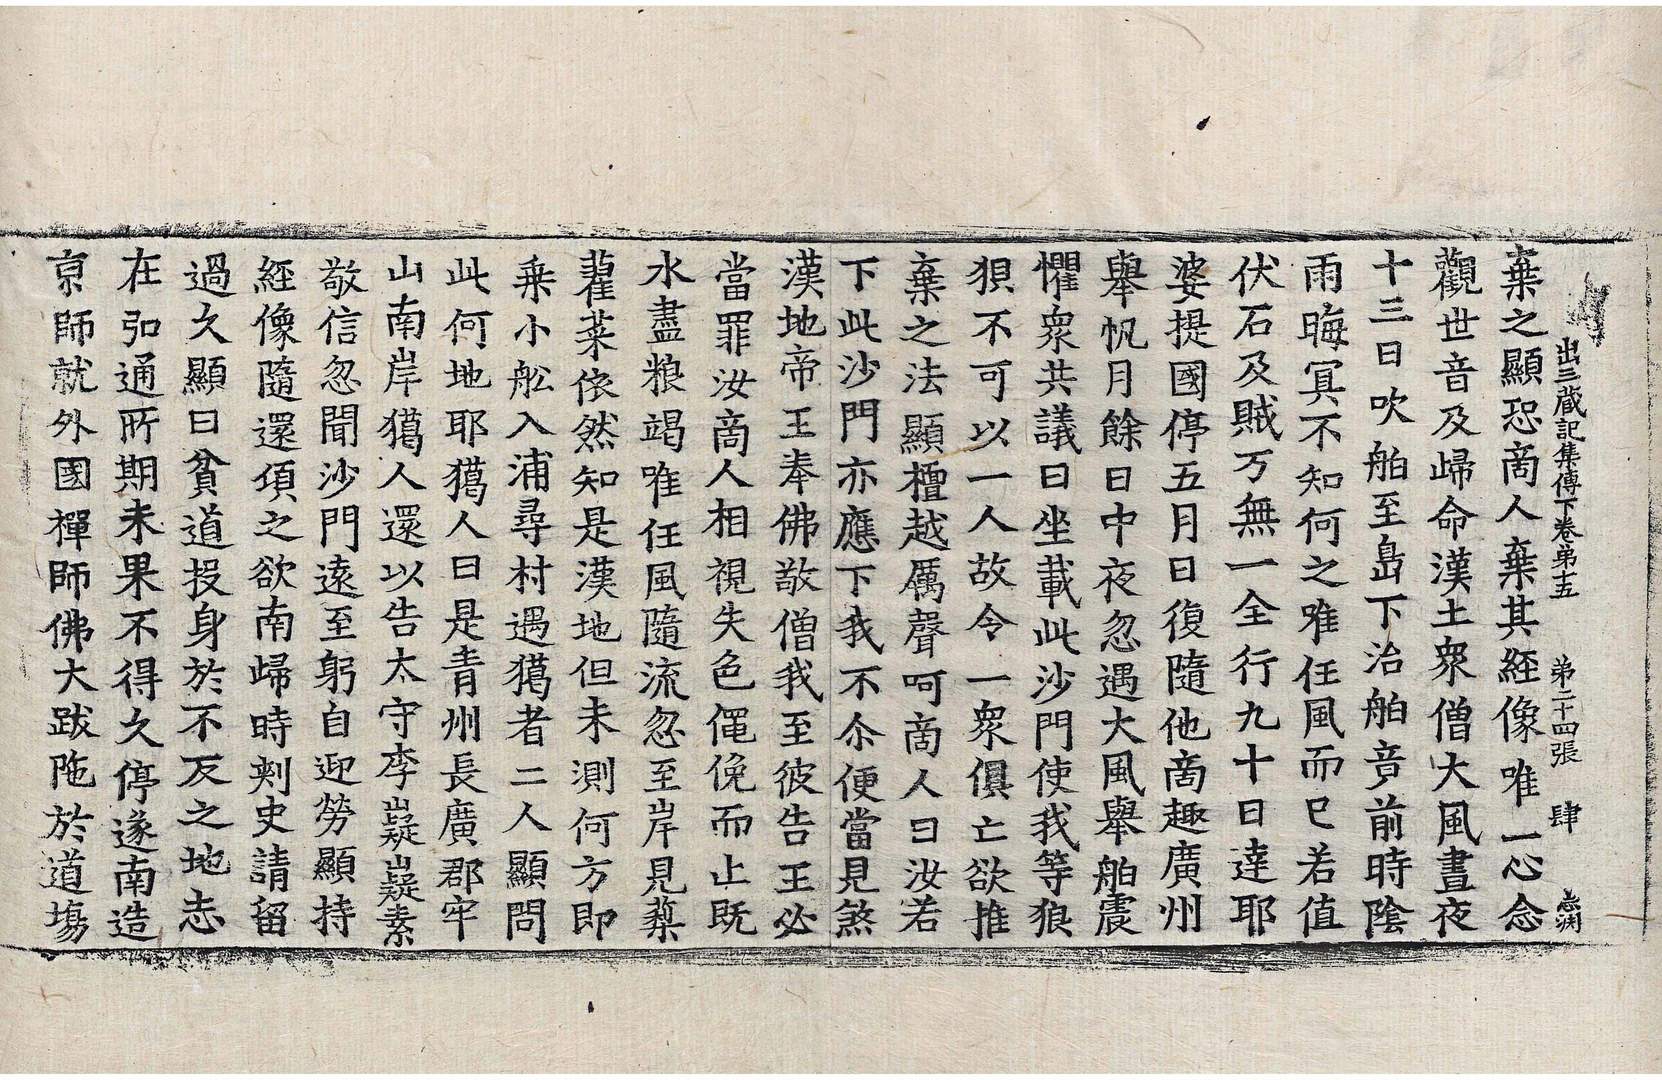 出三藏記集傳下卷第十五 第二十四張 肆 志渕
棄之顯恐啇人棄其經像唯一心念
觀世音及歸命漢土衆僧大風晝夜
十三日吹舶至島下治舶音前時陰
雨晦冥不知何之唯任風而已若值
伏石及賊万無一全行九十日達耶
婆提國停五月日復隨他啇趣廣州
舉帆月餘日中夜忽遇大風舉舶震
懼衆共議曰坐載此沙門使我等狼
狽不可以一人故令一衆俱亡欲推
棄之法顯檀越厲聲呵啇人曰汝若
下此沙門亦應下我不尒便當見煞
漢地帝王奉佛敬僧我至彼告王必
當罪汝啇人相視失色僶俛而止既
水盡粮竭唯任風隨流忽至岸見藜
藿菜依然知是漢地但未測何方即
乘小舩入浦尋村遇獦者二人顯問
此何地耶獦人曰是青州長廣郡牢
山南岸獦人還以告太守李嶷嶷素
敬信忽聞沙門遠至躬自迎勞顯持
經像隨還頃之欲南歸時刾史請留
過久顯曰貧道投身於不反之地志
在弘通所期未果不得久停遂南造
京師就外國禪師佛大跋陁於道塲